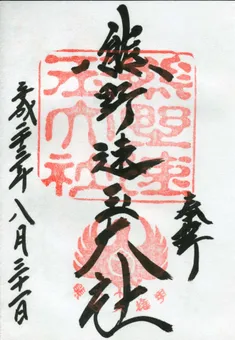 奉拝
熊野速玉大社
熊野速
玉大社
平成二十三年八月三十一日